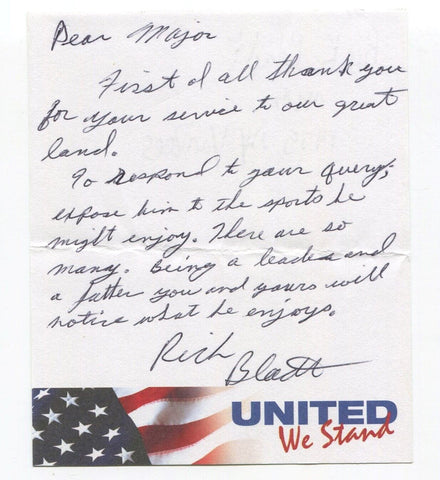 Dear Major
First of all thank you
for your service to our great
land.
To respond to your query,
expose him to the sports he
might enjoy. There are so
many. Being a leader and
a father you and yours will
notice what he enjoys.
Rich
UNITED
We Stand